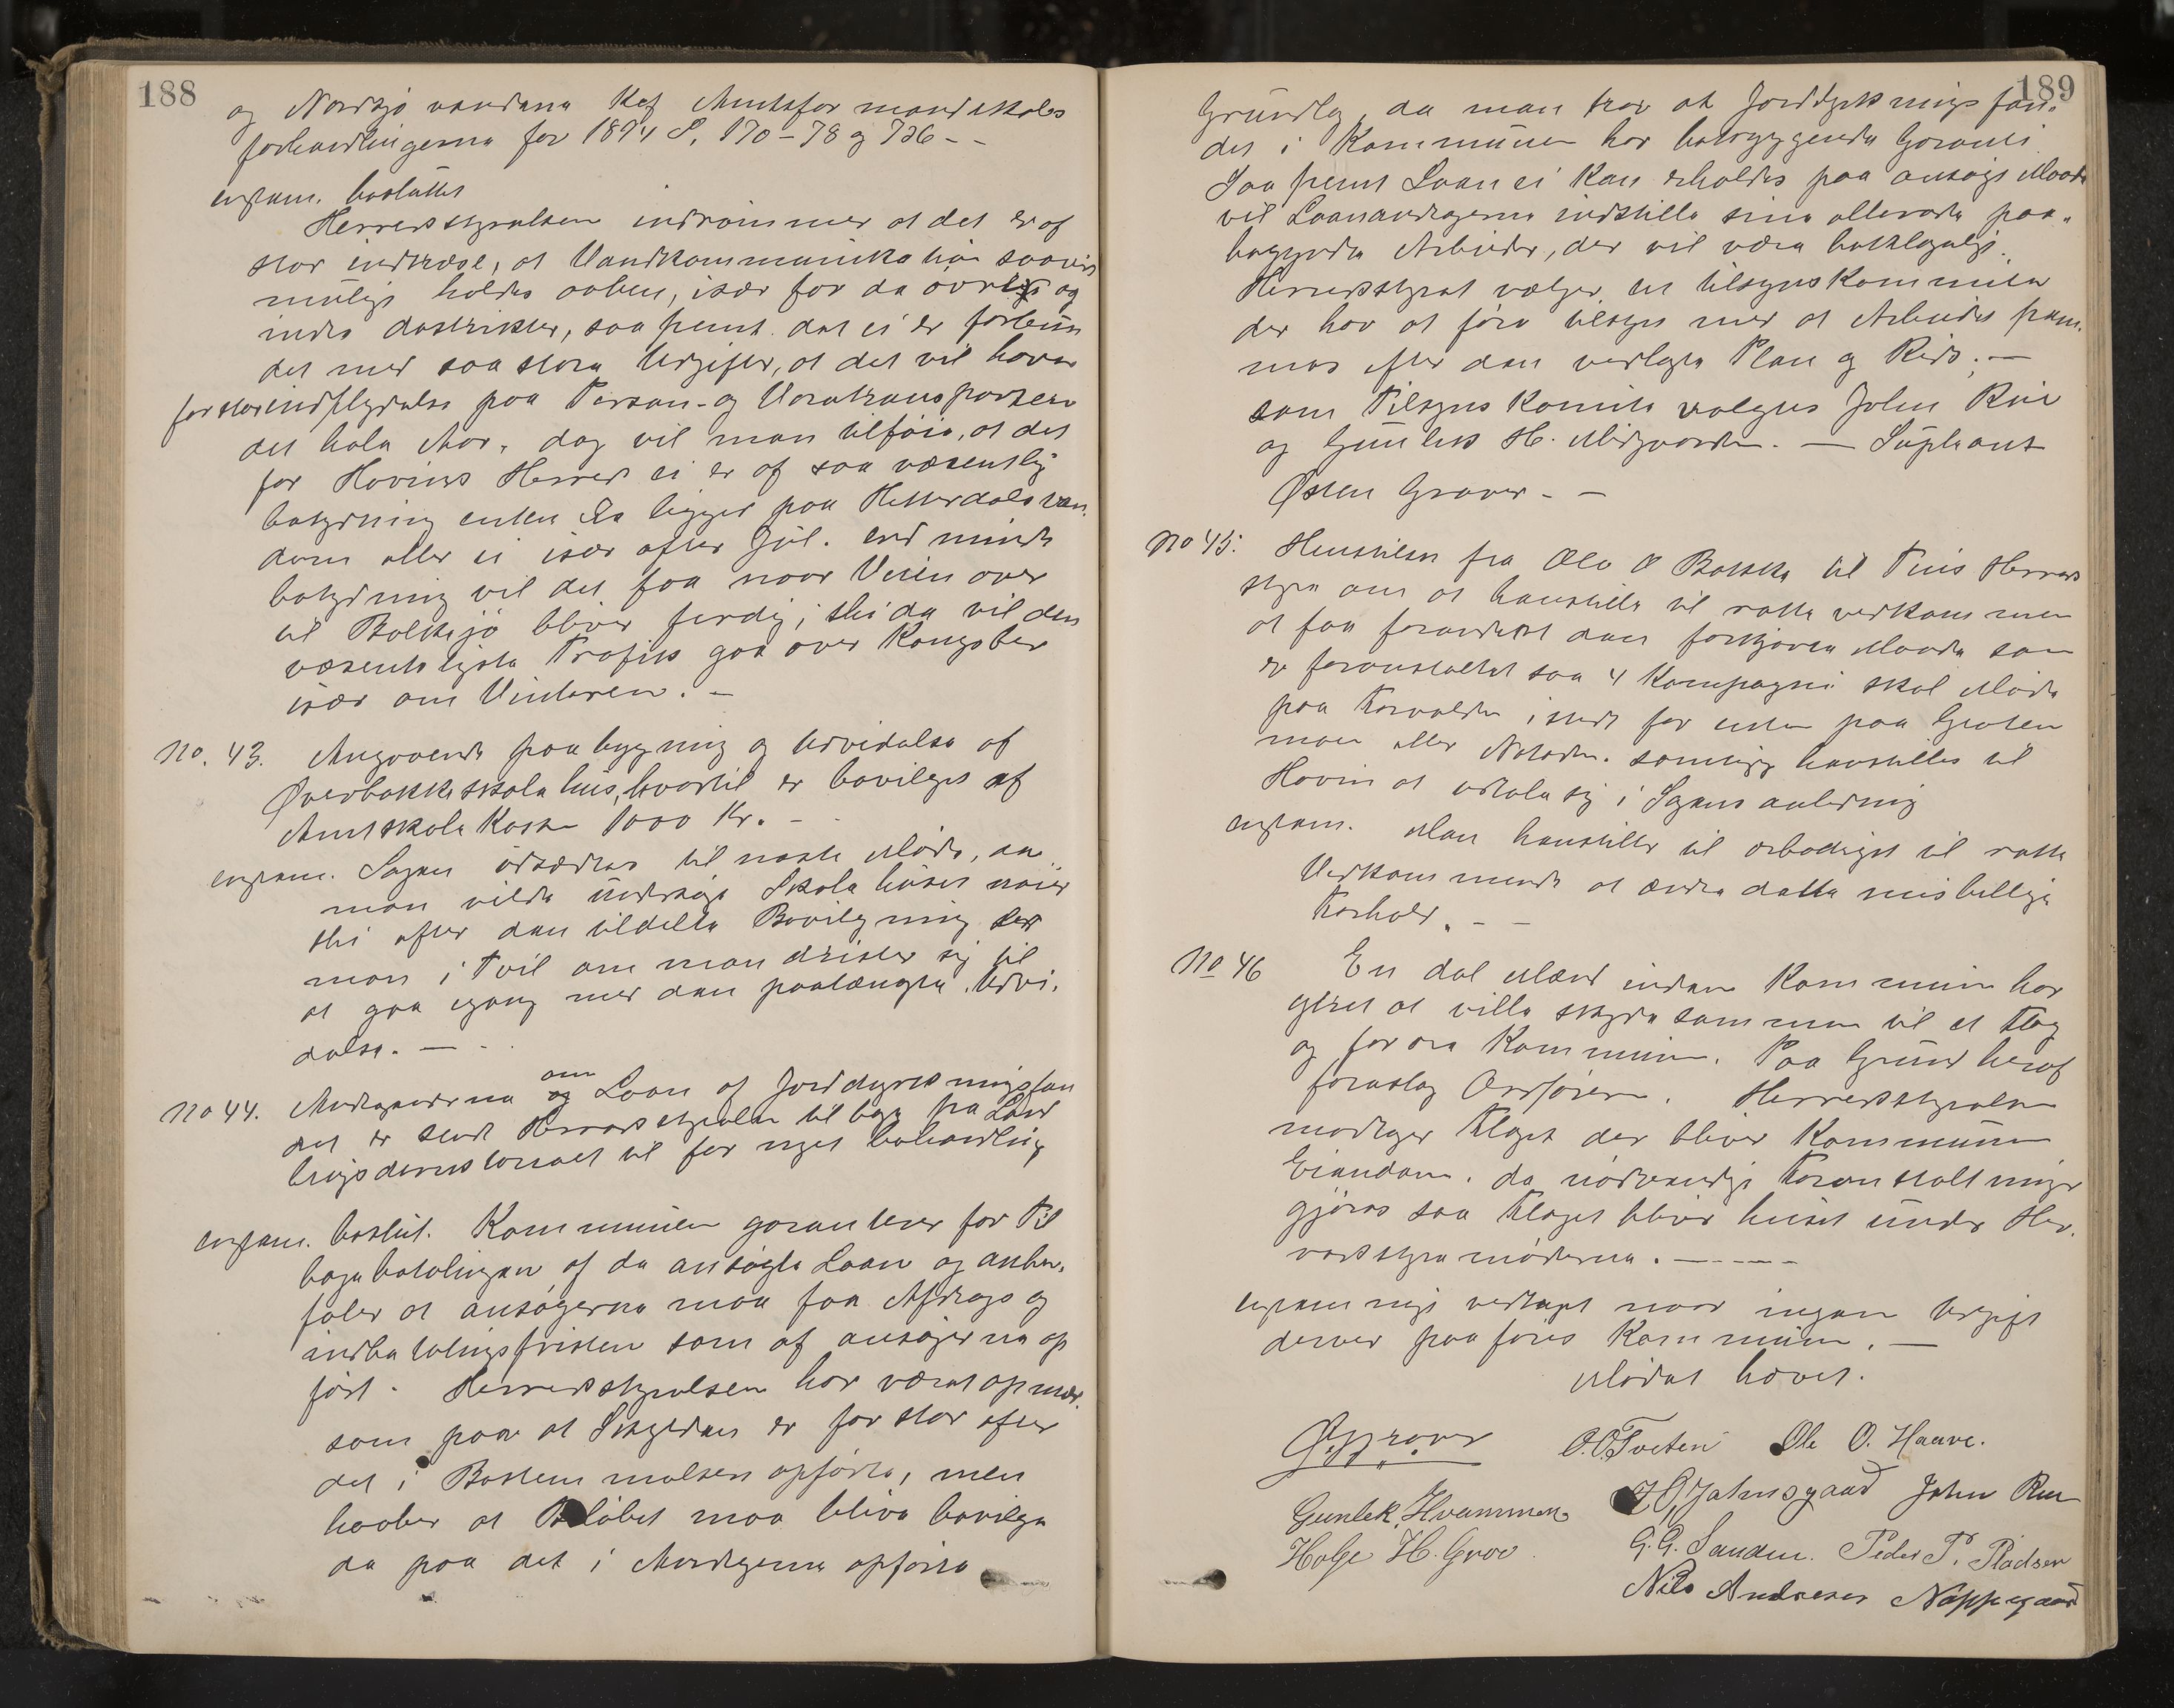 188
og Nordsjø vandene Kef Amtsformandskabs
forhandlingerne for 1894 S. 170-78 og 736 --
enstem. besluttet
Herredsstyrelsen indrømmer at det er af
stor indtræse, at Vandkommunikation saavit
muligt holdes aaben, især for de øvrige og
indre destrikter, saa fremt det ei er forbun
det med saa store Udgifter, at det vil have
for stor indflydelse paa Person- og Varetransporten
det hele Aar. dog vil man tilføie, at det
for Hovins Herred ei er af saa væsentlig
betydning enten Is ligger paa Hitterdalsvan
dene eller ei især efter Jul. end mindre
betydning vil det faa naar Veien over
til Bolkesjø bliver ferdig, thi da vil den
væsentligste Trafik gaa over Kongsber
især om Vinteren. -
No. 43. Angaaende paabygning og Udvidelse af
Øverbøkke skolehus, hvortil er bevilget af
Amtskole Kassen 1000 Kr. -
enstem. Sagen udsættes til næste Møde, da
man vilde undersøge Skolehuset nøier
thi efter den tildelte Bevilgning er
man i Tvil om man drister sig til
at gaa igang med den paatænkte Udvi-
delse. —
No 44. Andragenderne om Laan af Jorddyrkningsfon
det er sendt Herredsstyrelsen tilbage fra Land
brugsdirektoratet til fornyet behandling
enstem. beslut. Kommunen garanterer for Til
bagebetalingen af de ansøgte Laan og anbe-
faler at ansøgerne maa faa Afdrags og
indbetalingsfristen som af ansøgerne op
ført. Herredsstyrelsen har været opmær
som paa at Skylden er for stor efter
det i Bestemmelsen opførte, men
haaber at Beløbet maa blive bevilget
da paa det i Andragerne opførte
189
Grundlag, da man tror at Jorddyrkningsfon-
det i Kommunen har betryggende Garanti
Saa fremt Laan ei kan erholdes paa ansøgt Maade
vil Laanandragerne indstille sine allerede paa-
begyndte Arbeider, der vil være beklageligt.
Herredsstyret vælger en tilsynskommite
der har at føre tilsyn med at Arbeidet frem-
mes efter den vedlagte Plan og Rids. —
som Tilsyns Komite valgtes John Rue
og Gunleik H. Midgaarden. — Supleant
Østen Graver - -
No 45. Henstillen fra Ole O Bakka til Tins Herreds
styre om at henstille til rette vedkommen
at faa forandret den forkjerte Maade som
er foranstaltet saa 4 Kompagni skal Møde
paa Torvalden istedt for enten paa Groten
moen eller Notodden. samtidig henstilles til
Hovin at udtale sig i Sagens anledning
enstem. Man henstiller til ærbødigst til rette
Vedkommende at ændre dette misbillige
Forhold. - -
No 46 En del Mænd inden Kommunen har
ytret at ville skyde sammen til et Flag
og forære Kommunen. Paa Grund heraf
foreslog Ordføreren. Herredsstyrelsen
modtager Flaget der bliver Kommunens
Eiendom. de nødvendige Foranstaltninger
gjøres saa Flaget bliver heiset under Her-
redsstyremøderne. -----
enstemmigt vedtaget naar ingen Udgift
derved paaføres Kommunen. —
Mødet hævet.
O. O. Tveten Ole O. Haave.
Gunlek Hvammen H. O. Jalmsgaard John Rue
Holje H. Grov G. G. Sanden. Peder P. Pladsen
Nils Andresen Nappegaard